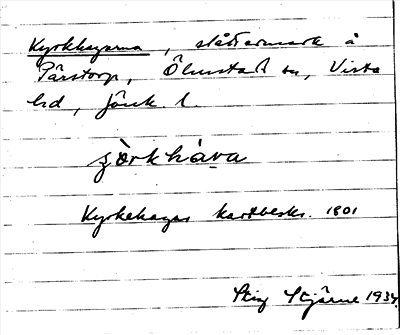 Kyrkhagarna, slåttermark å
Pårstorp, Ölmstad sn, Vista
hd, Jönk l.
Kyrkehagar kartbeskr. 1801
Stig Stjärne 1934.